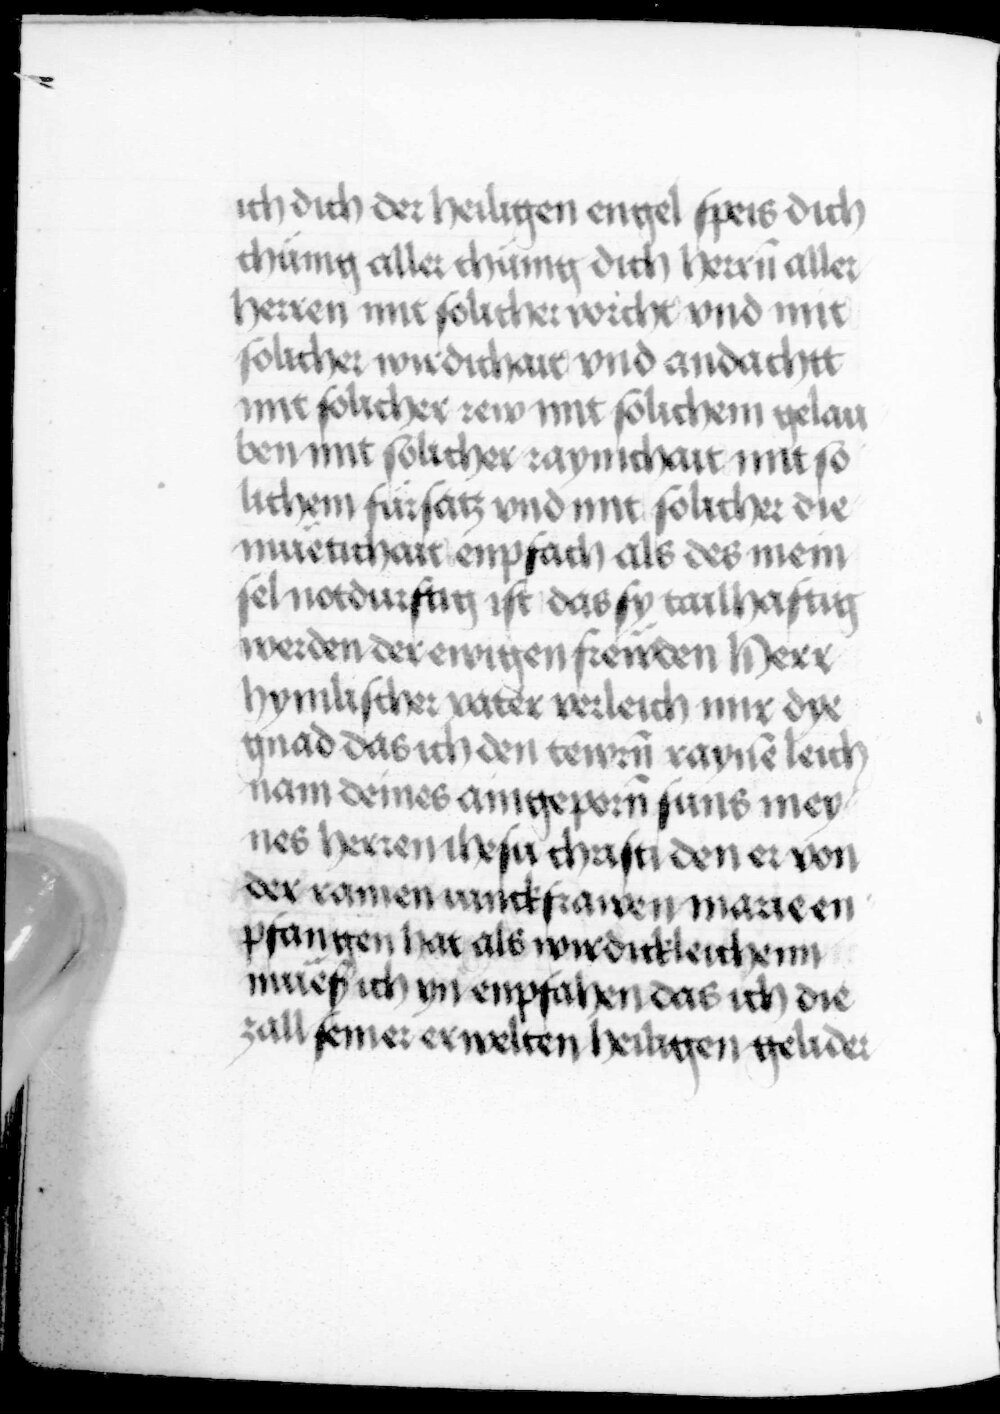 ich dich der heiligen engel speis dich
chünig aller chünig dich herrn̄ aller
herren mit solicher vorcht vnd mit
solicher wirdichait vnd andachtt
mit solicher rew mit solichem gelau
ben mit solicher raynichait mit so
lichem fürsatz vnd mit solicher die
muëtichait enpfach als des mein
sel notdurftig ist das sy tailhaftig
werden der ewigen frëwden Herr
hymlischer vater verleich mir dye
gnad das ich den tewrn̄ raynē leich
nam deines aingeporn̄ suns mey
nes herren ihesu christi den er von
der rainen iunckfrawen marie en
pfangen hat als wirdickleichenn
muës ich yn enpfahen das ich die
zall seiner erwelten heiligen gelider